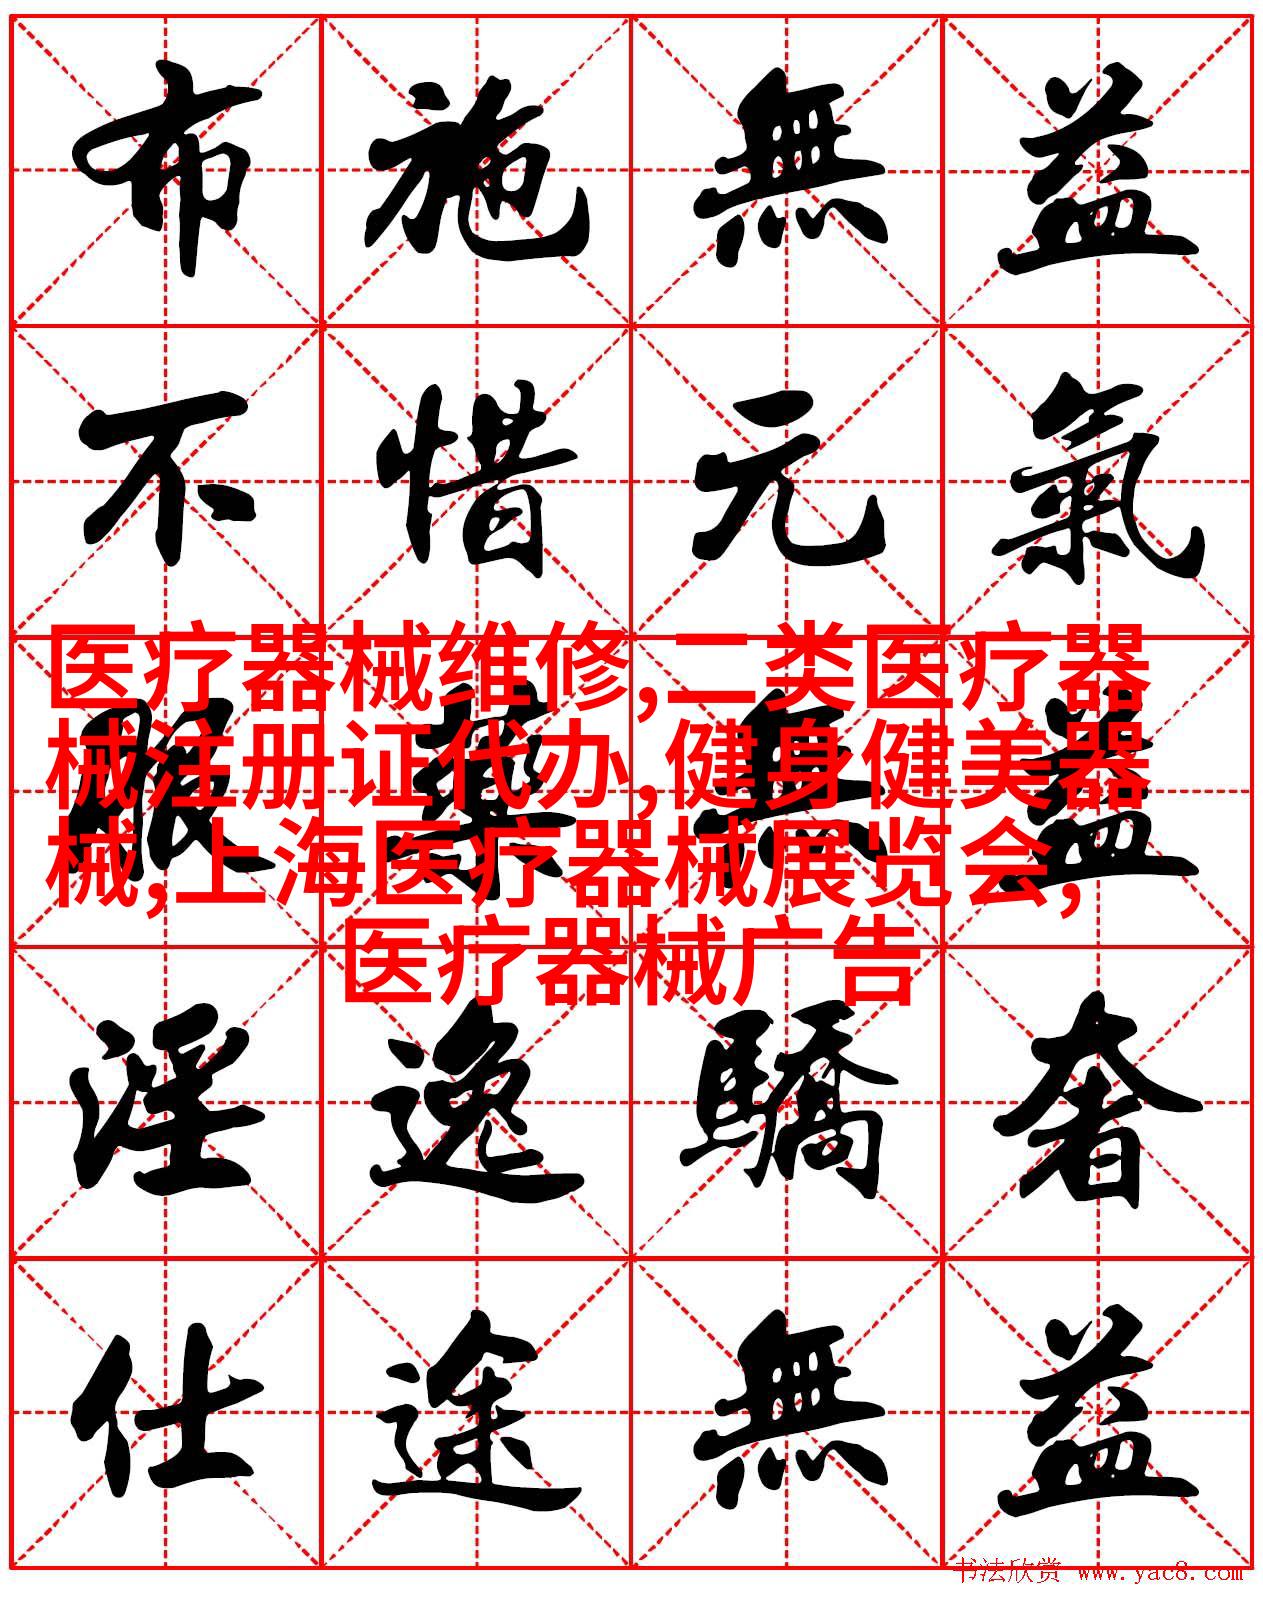 布施無益
不惜元氣
医疗器械维修,二类医疗器
械注册证代办,健身健美器
械,上海医疗器械展览会,
医疗器械广告
服藥無益
淫逸驕奢
仕途無益
书法欣赏 www.yac8.com